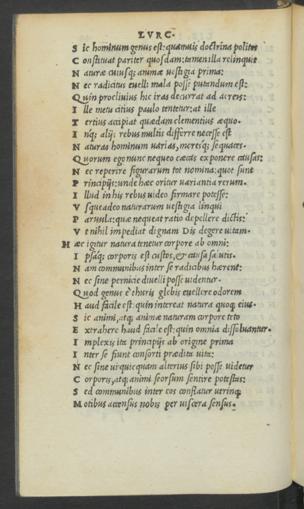 LVRC.
S ic hominum genus est: quamuis doctrina politos
C onstituat pariter quosdam: tamen illa relinquit
N aturæ cuiusq; animæ uestigia prima:
N ec radicitus euelli mala posse putandum est:
Q uin procliuius hic iras decurrat ad acreis:
I lle metu citius paulo tentetur: at ille
T ertius accipiat quædam clementius æquo.
I nq; alijs rebus multis differre necesse est
N aturas hominum uarias, moresq; sequaces.
Q uorum ego nunc nequeo cæcas exponere causas:
N ec reperire figurarum tot nomina: quot sunt
P rincipijs: unde hæc oritur uariantia rerum.
I llud in his rebus uideo firmare potesse:
V sque adeo naturarum uestigia linqui
P aruula: quæ nequeat ratio depellere dictis:
V t nihil impediat dignam Dis degere uitam.
H æc igitur natura tenetur corpore ab omni:
I psaq; corporis est custos, & causa salutis.
N am communibus inter se radicibus hærent:
N ec sine pernicie diuelli posse uidentur.
Q uod genus è thuris glebis euellere odorem
H aud facile est: quin intereat natura quoq; eius.
S ic animi, atq; animæ naturam corpore toto
E xtrahere haud facile est: quin omnia dissoluantur.
I mplexis ita principijs ab origine prima
I nter se fiunt consorti prædita uita:
N ec sine ui quicquam alterius sibi posse uidetur
C orporis, atq; animi seorsum sentire potestas:
S ed communibus inter eos conflatur utrinq;
M otibus accensus nobis per uiscera sensus.